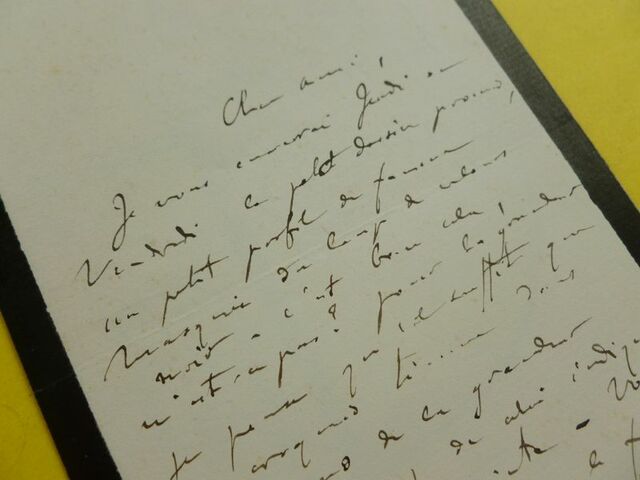 Cher ami,
Je vous enverrai Jeudi ou
Vendredi le petit dessin promis,
un petit profil de femme
masquée du loup de velours
noir - c'est bien cela,
n'est-ce pas? pour la grandeur
Je pense qu'il suffit que
croquis dans
de la grandeur
de celui indiqu